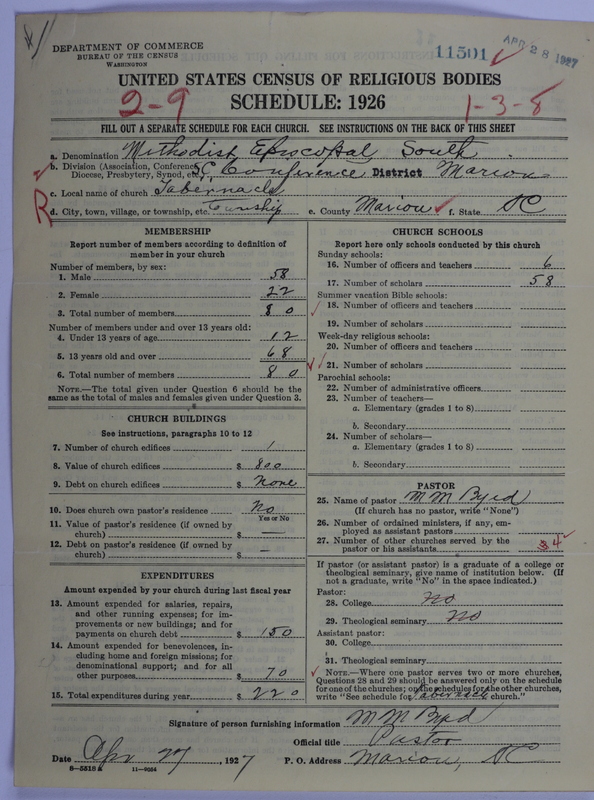 DEPARTMENT OF COMMERCE
BUREAU OF THE CENSUS
WASHINGTON
11501
APR 28 1927
UNITED STATES CENSUS OF RELIGIOUS BODIES
SCHEDULE: 1926
2-9
1-3-8
FILL OUT A SEPARATE SCHEDULE FOR EACH CHURCH. SEE INSTRUCTIONS ON THE BACK OF THIS SHEET
a. Denomination Methodist Episcopal, South
b. Division (Association, Conference, Diocese, Presbytery, Synod, etc.) S.C. Conference District Marion
c. Local name of church Tabernacle
R
d. City, town, village, or township, etc. Township e. County Marion f. State SC
MEMBERSHIP
Report number of members according to definition of
member in your church
Number of members, by sex:
1. Male 58
2. Female 22
3. Total number of members 80
Number of members under and over 13 years old:
4. Under 13 years of age 12
5. 13 years old and over 68
6. Total number of members 80
NOTE.—The total given under Question 6 should be the
same as the total of males and females given under Question 3.
CHURCH BUILDINGS
See instructions, paragraphs 10 to 12
7. Number of church edifices 1
8. Value of church edifices $ 800
9. Debt on church edifices $ None
10. Does church own pastor's residence No
Yes or No
11. Value of pastor's residence (if owned by
church) $ —
12. Debt on pastor's residence (if owned by
church) $ —
EXPENDITURES
Amount expended by your church during last fiscal year
13. Amount expended for salaries, repairs,
and other running expenses; for im-
provements or new buildings; and for
payments on church debt $ 150
14. Amount expended for benevolences, in-
cluding home and foreign missions; for
denominational support; and for all
other purposes $ 70
15. Total expenditures during year $ 220
CHURCH SCHOOLS
Report here only schools conducted by this church
Sunday schools:
16. Number of officers and teachers 6
17. Number of scholars 58
Summer vacation Bible schools:
18. Number of officers and teachers
19. Number of scholars
Week-day religious schools:
20. Number of officers and teachers
21. Number of scholars
Parochial schools:
22. Number of administrative officers
23. Number of teachers—
a. Elementary (grades 1 to 8)
b. Secondary
24. Number of scholars—
a. Elementary (grades 1 to 8)
b. Secondary
PASTOR
25. Name of pastor M M Byrd
(If church has no pastor, write "None")
26. Number of ordained ministers, if any, em-
ployed as assistant pastors
27. Number of other churches served by the
pastor or his assistants 4
If pastor (or assistant pastor) is a graduate of a college or
theological seminary, give name of institution below. (If
not a graduate, write "No" in the space indicated.)
Pastor:
28. College No
29. Theological seminary No
Assistant pastor:
30. College
31. Theological seminary
NOTE.—Where one pastor serves two or more churches,
Questions 28 and 29 should be answered only on the schedule
for one of the churches; on the schedules for the other churches,
write "See schedule for Tabernacle church."
Signature of person furnishing information M M Byrd
Official title Pastor
Date Apr 27, 1927 P. O. Address Marion, SC
8-5518a 11-9034